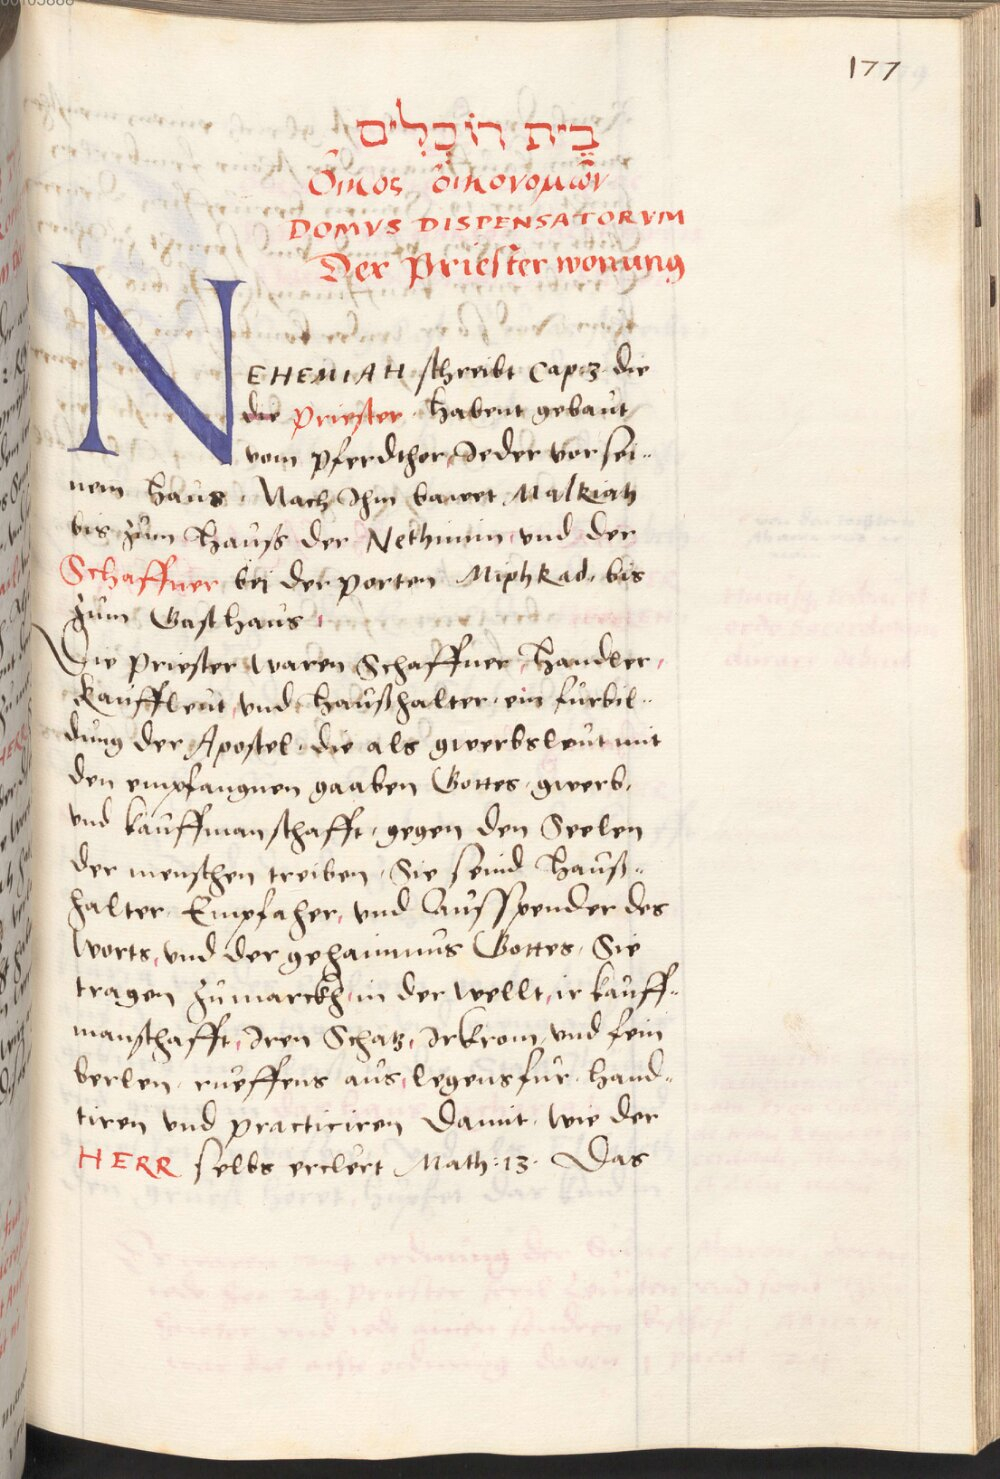 177
בֵּית רוֹכְלִים
Οἶκος οἰκονομῶν
DOMVS DISPENSATORVM
Der Priester wonung
NEHEMIAH schreibt Cap: 3. die
die Priester habent gebaut
vom pferdthor, Jeder vor sei-
nem haus. Nach Ihm bawet Malkiah
bis zum Hauß der Nethinim und der
Schaffner bei der porten Miphkad, bis
zum Gasthaus.
Die Priester waren Schaffner, Handler,
kauffleut, und Haußhalter. ein furbil-
dung der Apostel. die als gwerbsleut mit
den empfangnen gaaben Gottes, gwerb,
und kauffmanschafft, gegen den Seelen
der menschen treiben, Sie seind Hauß-
halter. Empfaher, und Aussspender des
Worts, und der gehaimnus Gottes. Sie
tragen zu marckh, in der wellt, ir kauff-
manschafft, Iren Schatz, Ir krom, und fein
berlen, rueffens aus, legens fur, hand-
tiren und practiciren damit, wie der
HERR selbs erclert Math: 13. Das